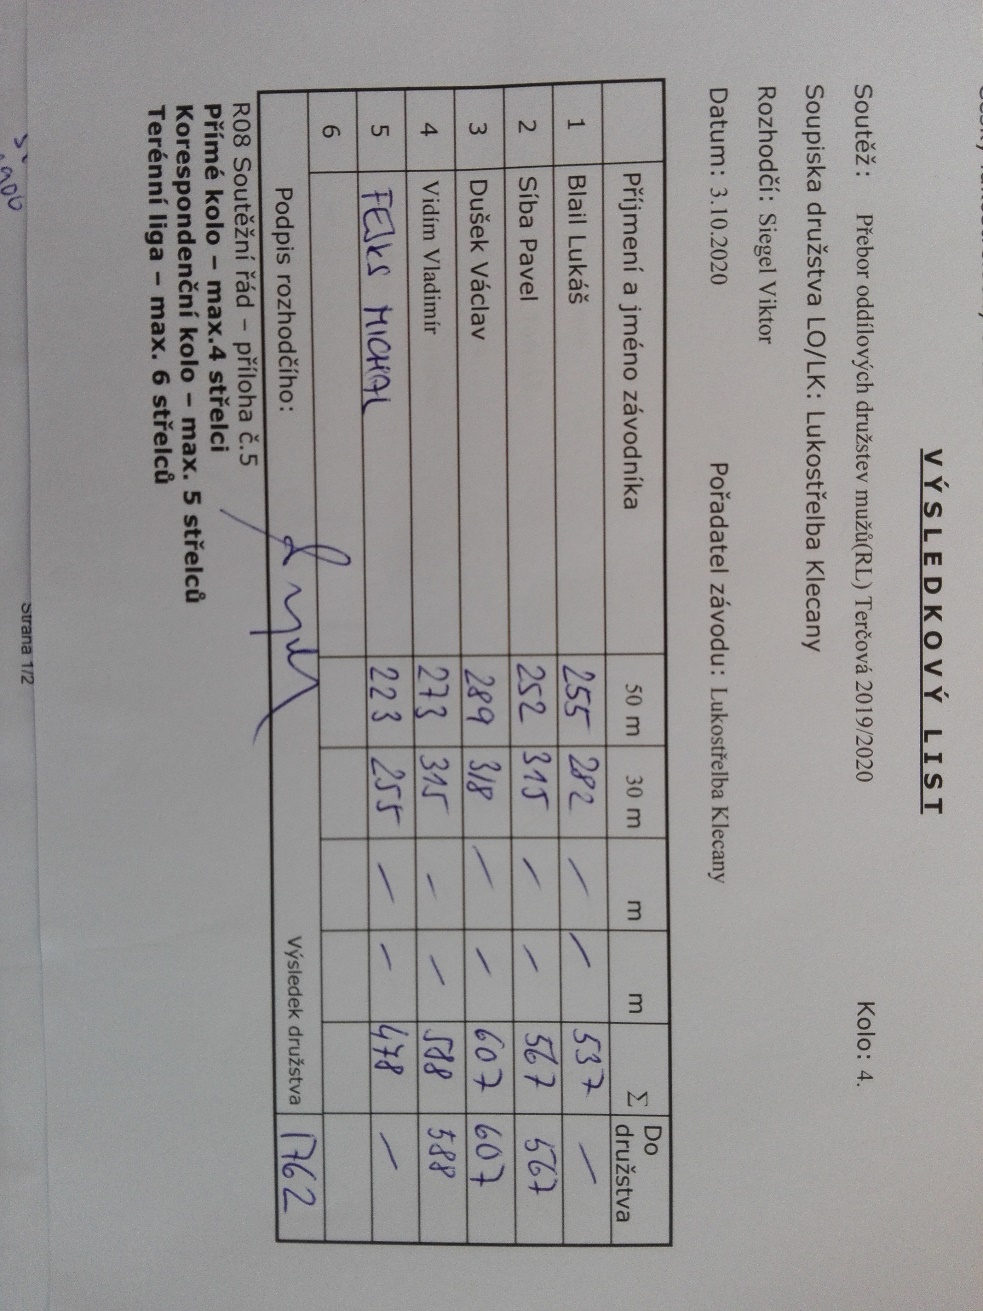 VÝSLEDKOVÝ LIST
Soutěž: Přebor oddílových družstev mužů(RL) Terčová 2019/2020 Kolo: 4.
Soupiska družstva LO/LK: Lukostřelba Klecany
Rozhodčí: Siegel Viktor
Datum: 3.10.2020 Pořadatel závodu: Lukostřelba Klecany
Příjmení a jméno závodníka 50 m 30 m m m Σ Do družstva
1 Blail Lukáš 255 282 – – 537 –
2 Síba Pavel 252 315 – – 567 567
3 Dušek Václav 289 318 – – 607 607
4 Vidim Vladimír 273 315 – – 588 588
5 FEJKS MICHAL 223 255 – – 478 –
6
Podpis rozhodčího: Výsledek družstva 1762
R08 Soutěžní řád – příloha č.5
Přímé kolo – max.4 střelci
Korespondenční kolo – max. 5 střelců
Terénní liga – max. 6 střelců
Strana 1/2